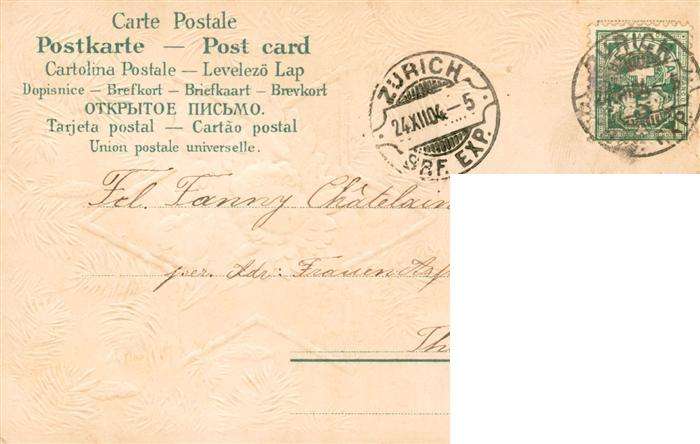 Carte Postale
Postkarte — Post card
Cartolina Postale — Levelező Lap
Dopisnice — Brefkort — Briefkaart — Brevkort
ОТКРЫТОЕ ПИСЬМО.
Tarjeta postal — Cartão postal
Union postale universelle.
ZÜRICH
24.XII.04.–5
BRF. EXP.
Frl. Fanny Châtelain
per. Adr: Frauen
Th